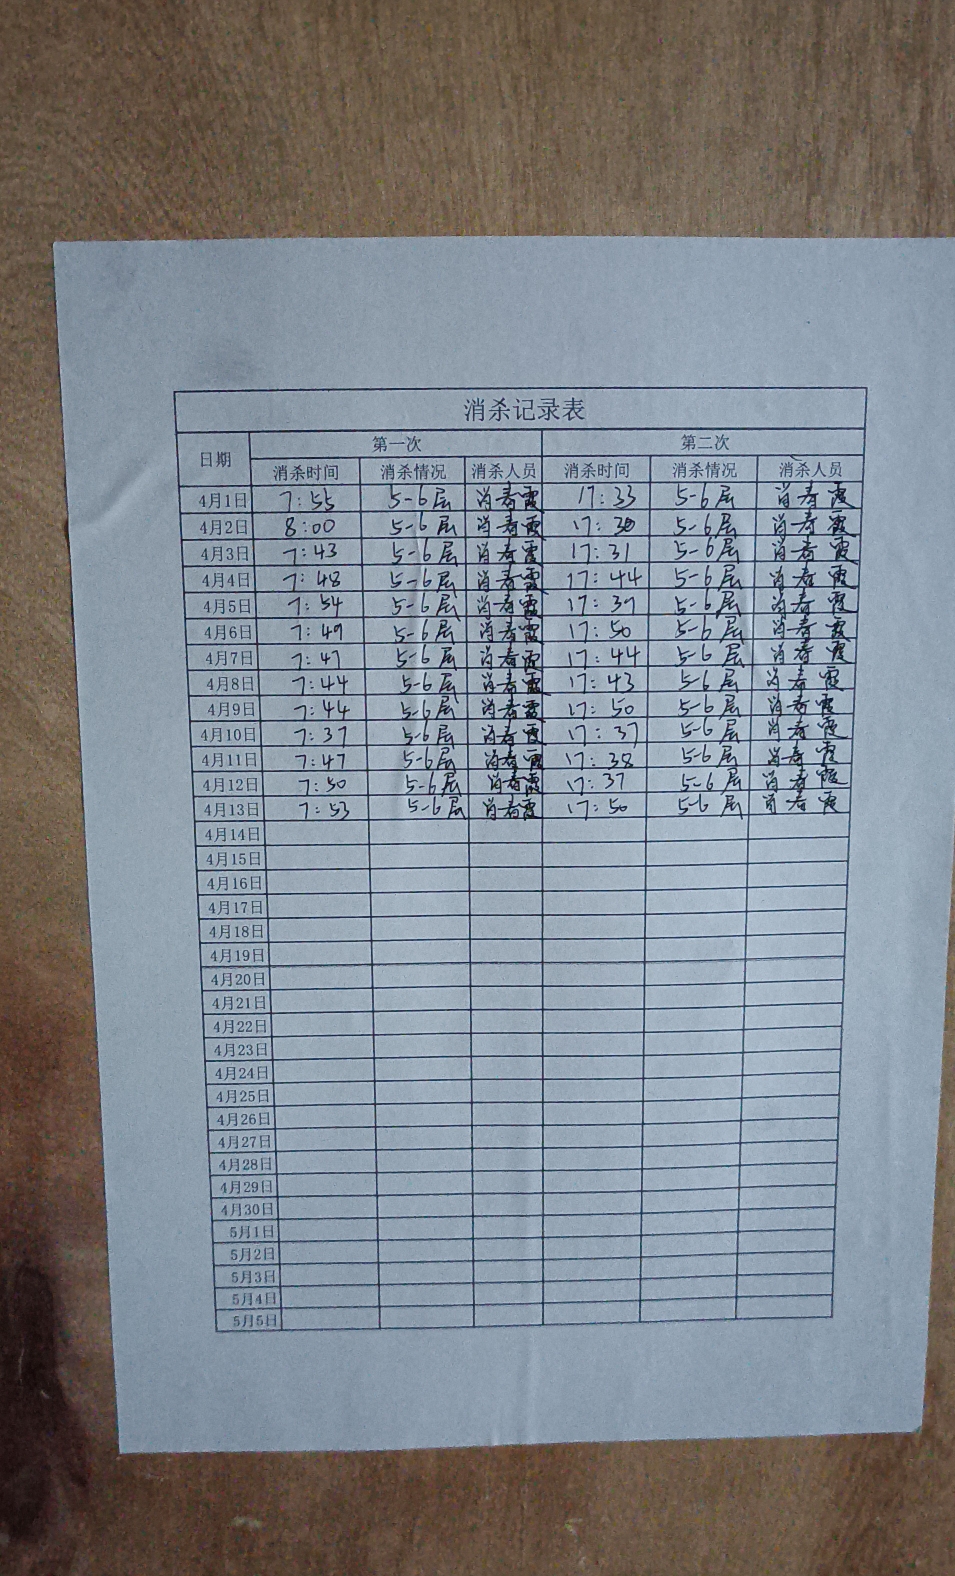 消杀记录表
日期 第一次 第二次
消杀时间 消杀情况 消杀人员 消杀时间 消杀情况 消杀人员
4月1日 7:55 5-6层 肖春霞 17:33 5-6层 肖春霞
4月2日 8:00 5-6层 肖春霞 17:30 5-6层 肖春霞
4月3日 7:43 5-6层 肖春霞 17:31 5-6层 肖春霞
4月4日 7:48 5-6层 肖春霞 17:44 5-6层 肖春霞
4月5日 7:54 5-6层 肖春霞 17:39 5-6层 肖春霞
4月6日 7:49 5-6层 肖春霞 17:50 5-6层 肖春霞
4月7日 7:47 5-6层 肖春霞 17:44 5-6层 肖春霞
4月8日 7:44 5-6层 肖春霞 17:43 5-6层 肖春霞
4月9日 7:44 5-6层 肖春霞 17:50 5-6层 肖春霞
4月10日 7:37 5-6层 肖春霞 17:37 5-6层 肖春霞
4月11日 7:47 5-6层 肖春霞 17:38 5-6层 肖春霞
4月12日 7:50 5-6层 肖春霞 17:37 5-6层 肖春霞
4月13日 7:53 5-6层 肖春霞 17:50 5-6层 肖春霞
4月14日
4月15日
4月16日
4月17日
4月18日
4月19日
4月20日
4月21日
4月22日
4月23日
4月24日
4月25日
4月26日
4月27日
4月28日
4月29日
4月30日
5月1日
5月2日
5月3日
5月4日
5月5日